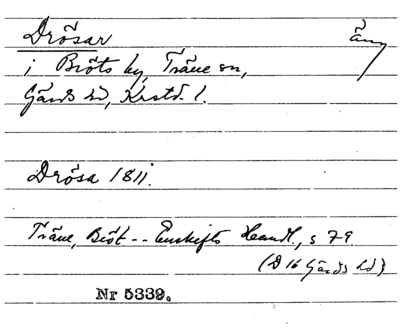 Drösar äng
i Bröts by, Träne sn,
Gärds hd, Krstd. l.
Drösa 1811.
Träne, Bröt -- Enskifts Handl., s 79
(D 16 Gärds hd)
Nr 5339.